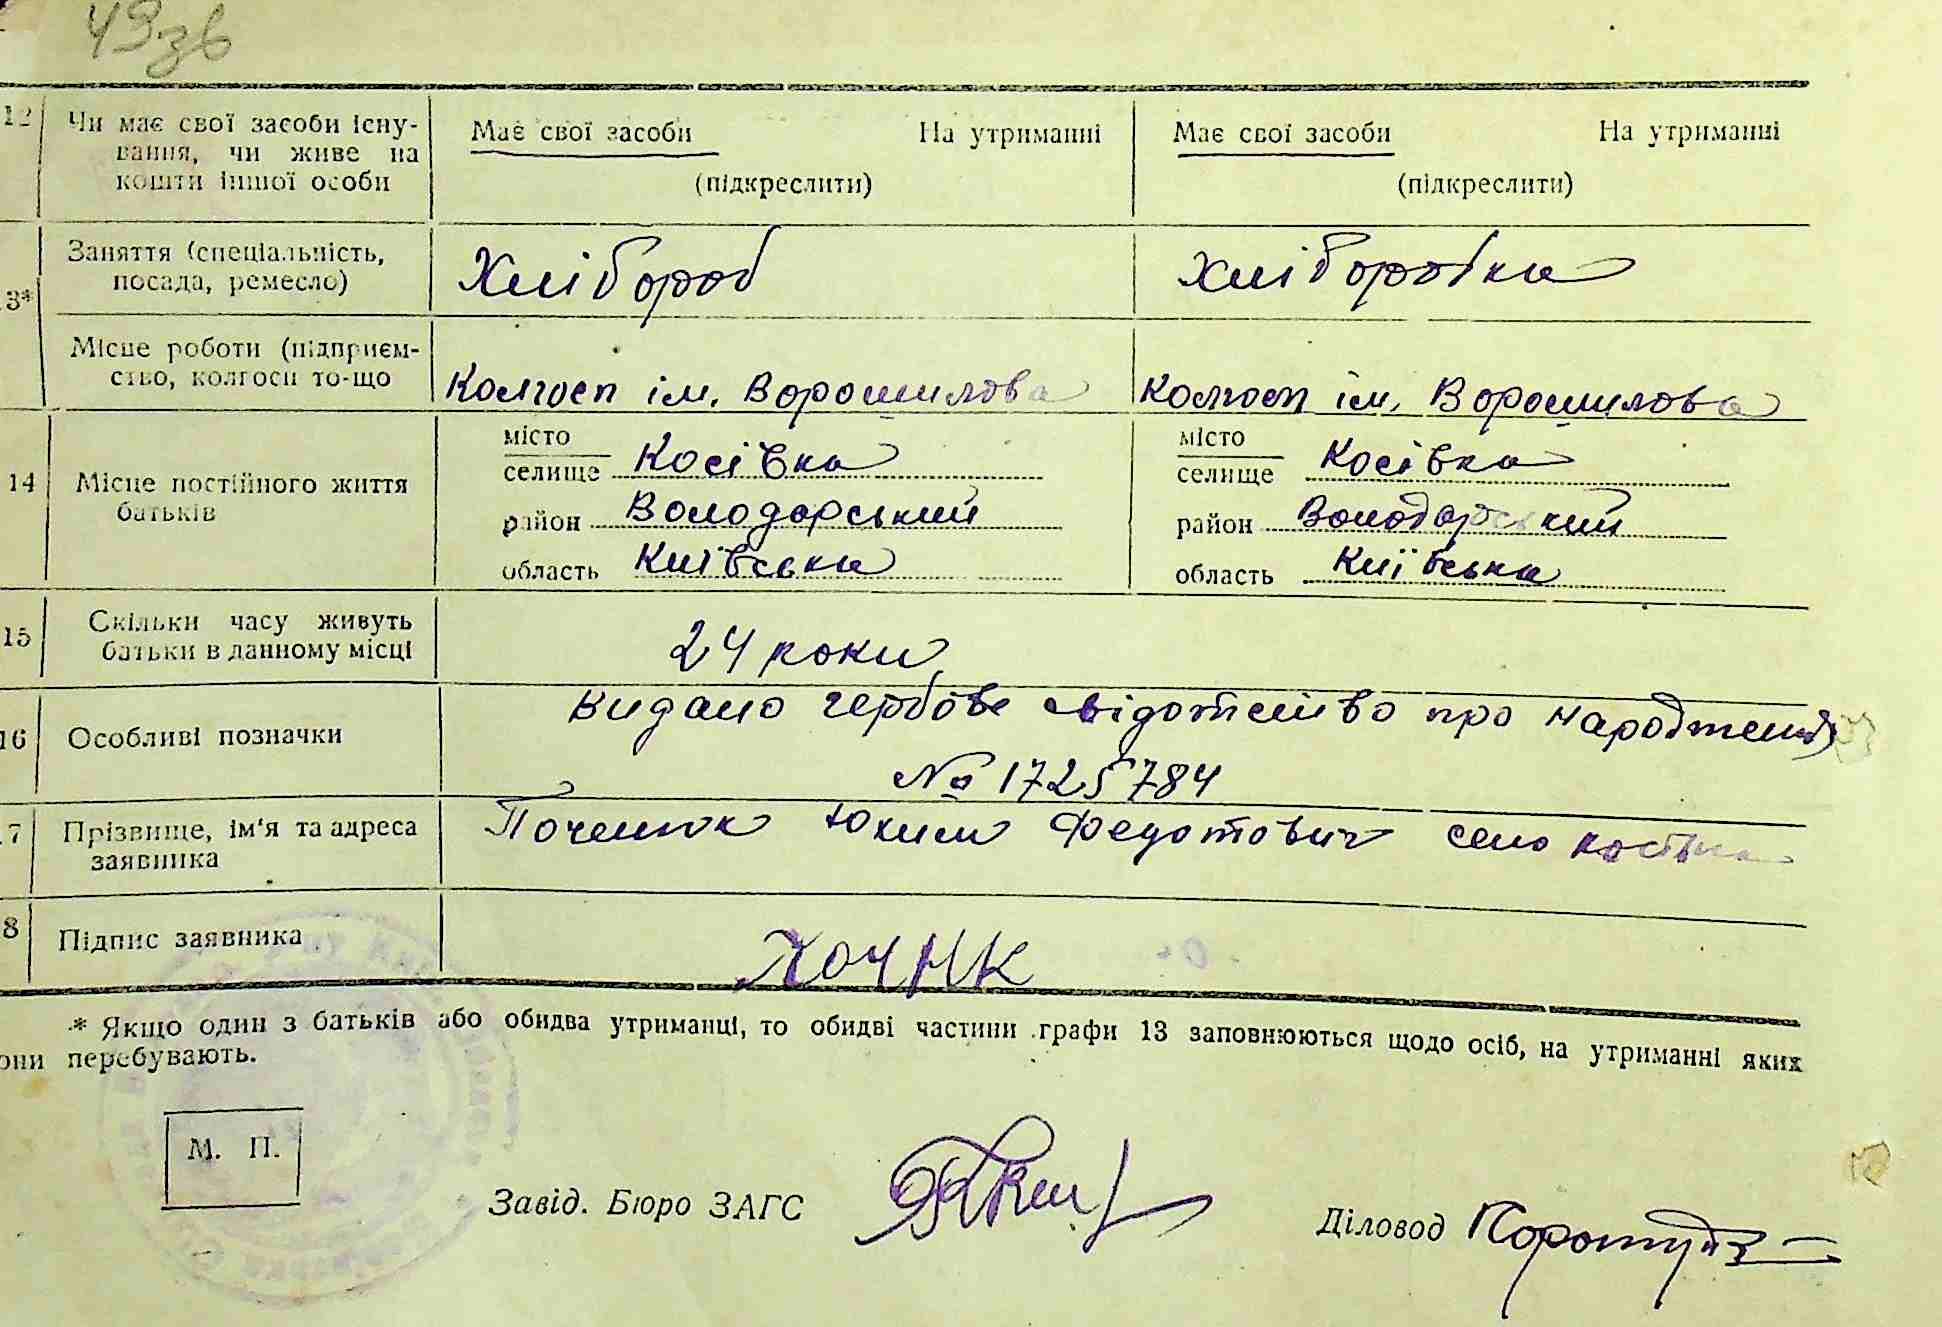 49зв
12 Чи має свої засоби існу- Має свої засоби На утриманні Має свої засоби На утриманні
вання, чи живе на
кошти іншої особи (підкреслити) (підкреслити)
3* Заняття (спеціальність, Хлібороб Хліборобка
посада, ремесло)
Місце роботи (підприєм- Колгосп ім. Ворошилова Колгосп ім. Ворошилова
ство, колгосп то-що
14 Місце постійного життя місто місто
батьків селище Косівка селище Косівка
район Володарський район Володарський
область Київська область Київська
15 Скільки часу живуть 24 роки
батьки в данному місці
16 Особливі позначки Видано гербове свідотство про народження
№ 1725784
7 Прізвище, ім'я та адреса Юхим Федотович село Косівка
заявника
8 Підпис заявника
* Якщо один з батьків або обидва утриманці, то обидві частини графи 13 заповнюються щодо осіб, на утриманні яких
они перебувають.
М. П.
Завід. Бюро ЗАГС
Діловод